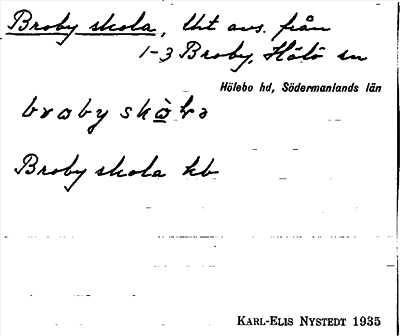 Broby skola, lht avs. från
1-3 Broby, Hölö sn
Hölebo hd, Södermanlands län
broby skò̲la
Broby skola kb
KARL-ELIS NYSTEDT 1935